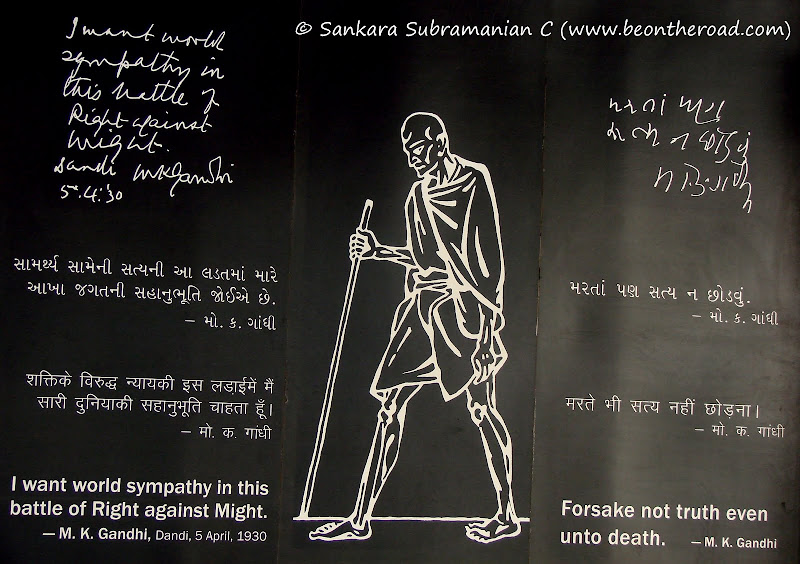 © Sankara Subramanian C (www.beontheroad.com)
I want world
sympathy in
this battle of
Right against
might.
Dandi MKGandhi
5.4.'30
સામર્થ્ય સામેની સત્યની આ લડતમાં મારે
આખા જગતની સહાનુભૂતિ જોઈએ છે.
– મો. ક. ગાંધી
शक्तिके विरुद्ध न्यायकी इस लड़ाईमें मैं
सारी दुनियाकी सहानुभूति चाहता हूँ।
– मो. क. गांधी
I want world sympathy in this
battle of Right against Might.
— M. K. Gandhi, Dandi, 5 April, 1930
મરતાં પણ
સત્ય ન છોડવું
મરતાં પણ સત્ય ન છોડવું.
– મો. ક. ગાંધી
मरते भी सत्य नहीं छोड़ना।
– मो. क. गांधी
Forsake not truth even
unto death. — M. K. Gandhi